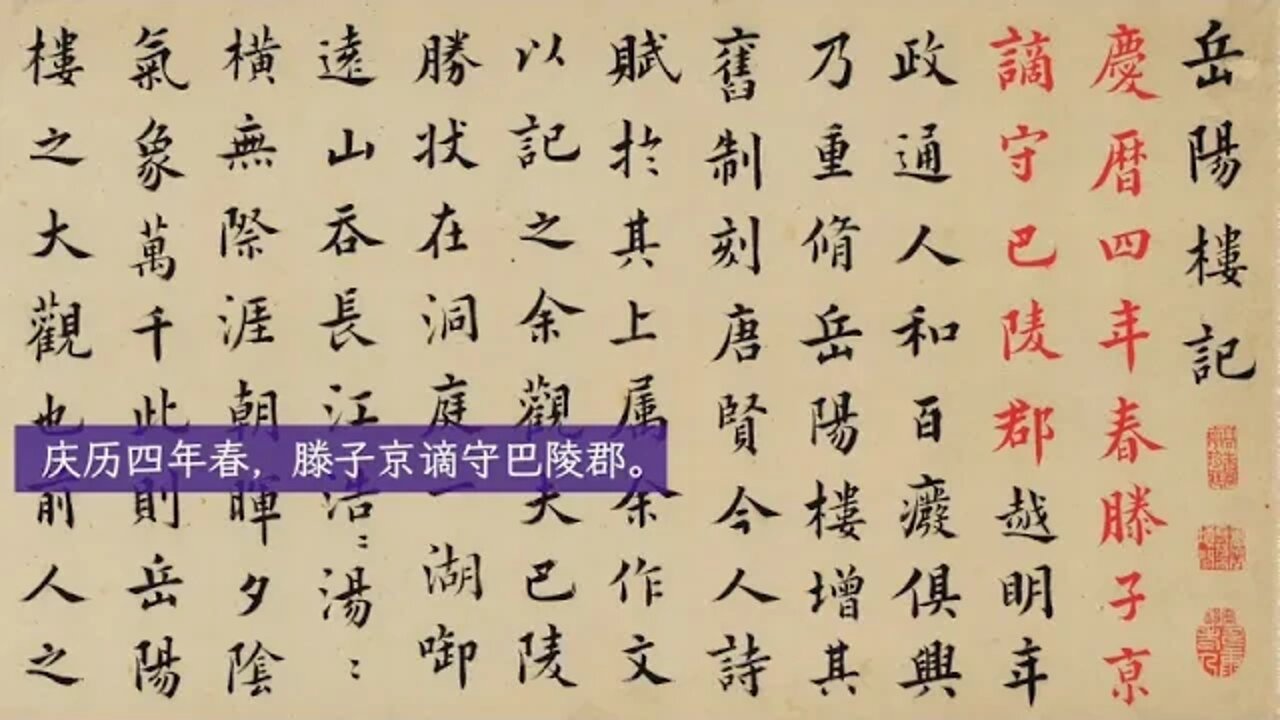 岳陽樓記
慶曆四年春滕子京
謫守巴陵郡越明年
政通人和百癈俱興
乃重脩岳陽樓增其
舊制刻唐賢今人詩
賦於其上属余作文
以記之余觀夫巴陵
勝状在洞庭一湖啣
遠山吞長江浩:湯:
橫無際涯朝暉夕陰
氣象萬千此則岳陽
樓之大觀也前人之
庆历四年春，滕子京谪守巴陵郡。